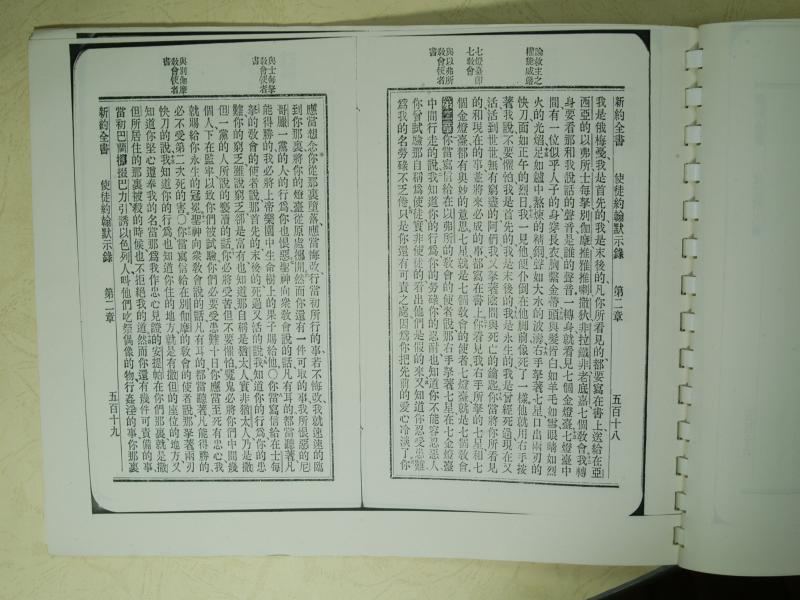 論救主之
權能威嚴
七燈臺即
七教會
與以弗所
教會使者
書
新約全書　使徒約翰默示錄　第二章　五百十八
我是俄梅憂我是首先的我是末後的凡你所看見的都要寫在書上送給在亞
西亞的以弗所士每拏別伽摩推雅推喇撒狄非拉鐵非老底嘉七個教會我轉
身要看那和我說話的聲音是誰的聲音一轉身就看見七個金燈臺七燈臺中
間有一位似乎人子的身穿長衣胸繫金帶頭與髮皆白如羊毛如雪眼睛如烈
火的光焰足如爐中煅煉的精銅聲如大水的波濤右手拏著七星口出兩刃的
快刀面如正午的烈日我一見他便仆倒在他脚前像死了一樣他就用右手按
著我說不要懼怕我是首先的我是末後的我是永生的我是曾經死過現在又
活活到世世無有窮盡的阿們我又拏著陰間與死亡的鑰匙你當將你所看見
的和現在的事並將來必成的事都寫在書上你看見我右手所拏的七星和七
個金燈臺都有奧妙的意思七星就是七個教會的使者七燈臺就是七個教會
你當寫信給在以弗所的教會的使者說那右手拏著七星在七金燈臺
中間行走的說我知道你的行為你的勞碌你的忍耐也知道你不能容忍惡人
你曾試驗那自稱為使徒實非使徒的看出他們是假的來又知道你忍受患難
為我的名勞碌不乏倦只是你還有可責之處因為你把先前的愛心冷淡了你
與士每拏
教會使者
書
與別伽摩
教會使者
書
應當想念你從那裏墮落應當悔改行當初所行的事若不悔改我就速速的臨
到你那裏將你的燈臺從原處挪開然而你還有一件可取的事我所恨惡的尼
哥臘一黨的人的行為你也恨惡聖神向衆教會說的話凡有耳的都當聽著凡
能得勝的我必將上帝樂園中生命樹上的果子賜給他○你當寫信給在士每
拏的教會的使者說那首先的末後的死過又活的說我知道你的行為你的患
難你的窮乏雖說窮乏卻是富有也知道那自稱是猶太人實非猶太人乃是撒
但一黨的人所說的褻瀆的話你必將受苦但不要懼怕魔鬼必將你們中間幾
個人下在監牢以致你們被試驗你們必要受患難十日你應當至死有忠心我
就賜給你永生的冠冕聖神向衆教會說的話凡有耳的都當聽著凡能得勝的
必不受第二次死的害○你當寫信給在別伽摩的教會的使者說那拏著兩刃
快刀的說我知道你的行為也知道你住的地方就是有撒但的座位的地方又
知道你堅心遵奉我的名當那為我作忠心見證的安提帕在你們那裏就是撒
但所居住的那裏被殺的時候也不拒絕我的道然而你還有幾件可責備的事
當初巴蘭挪掇巴力引誘以色列人叫他們吃祭偶像的物行姦淫的事你那裏
新約全書　使徒約翰默示錄　第二章　五百十九